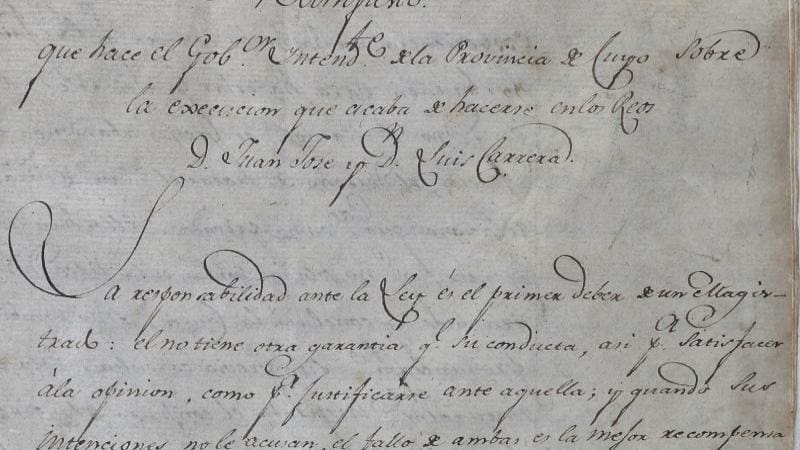 Manifiesto.
que hace el Gob.or Intend.te de la Provincia de Cuyo Sobre
la execucion que acaba de hacerse en los Reos
D. Juan Jose y D.n Luis Carrera.
La responsabilidad ante la Ley és el primer deber de un Magis-
trado: el no tiene otra garantia q.e su conducta, asi p.a Satisfacer
ála opinion, como p.a Justificarse ante aquella; y quando sus
intenciones no le acusan, el fallo de ambas es la mejor recompensa